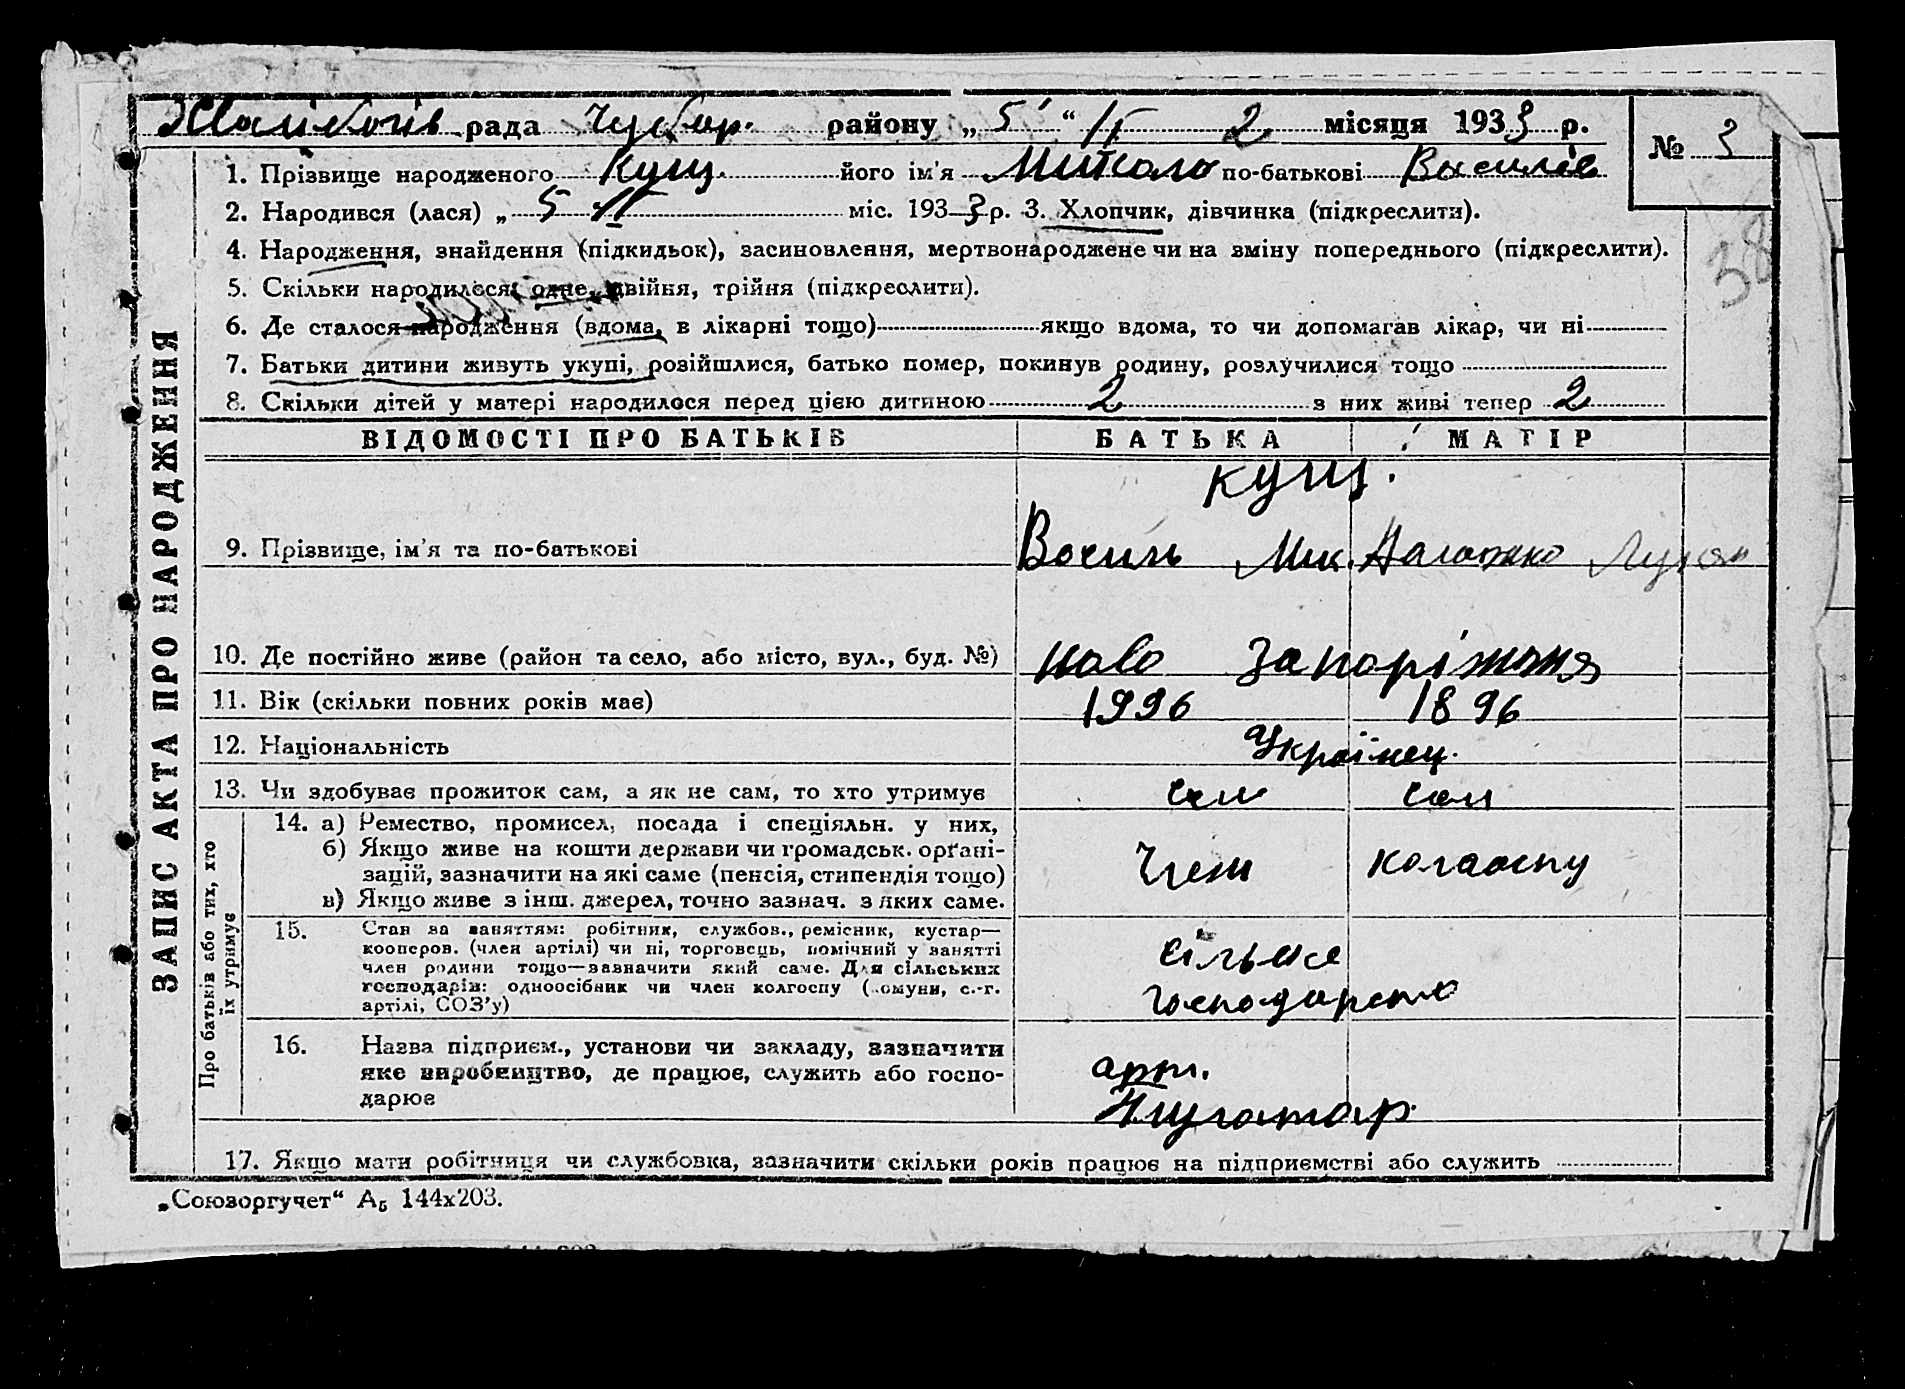 рада Чубар. району „ 5 “ II 2 місяця 1933 р.
№ 3
1. Прізвище народженого Кущ. його ім'я Микола по-батькові Василів
2. Народився (лася) „ 5 II міс. 1933 р. 3. Хлопчик, дівчинка (підкреслити).
38
4. Народження, знайдення (підкидьок), засиновлення, мертвонароджене чи на зміну попереднього (підкреслити).
5. Скільки народилося: одне, двійня, трійня (підкреслити).
6. Де сталося народження (вдома, в лікарні тощо) якщо вдома, то чи допомагав лікар, чи ні
7. Батьки дитини живуть укупі, розійшлися, батько помер, покинув родину, розлучилися тощо
8. Скільки дітей у матері народилося перед цією дитиною 2 з них живі тепер 2
ЗАПИС АКТА ПРО НАРОДЖЕННЯ
ВІДОМОСТІ ПРО БАТЬКІВ БАТЬКА МАТІР
Кущ.
9. Прізвище, ім'я та по-батькові Василь Мик. Наталка Лукян
10. Де постійно живе (район та село, або місто, вул., буд. №) ново Запоріжжя
11. Вік (скільки повних років має) 1996 1896
12. Національність Українец.
13. Чи здобуває прожиток сам, а як не сам, то хто утримує сам сам
Про батьків або тих, хто їх утримує
14. а) Ремество, промисел, посада і спеціяльн. у них,
б) Якщо живе на кошти держави чи громадськ. орґані-
зацій, зазначити на які саме (пенсія, стипендія тощо) Член колгоспу
в) Якщо живе з інш. джерел, точно зазнач. з яких саме.
15. Стан за заняттям: робітник, службов., ремісник, кустар—
кооперов. (член артілі) чи ні, торговець, помічний у занятті
член родини тощо—зазначити який саме. Для сільських
господарів: одноосібник чи член колгоспу (комуни, с.-г.
артілі, СОЗ'у)
сільське
господарство
16. Назва підприєм., установи чи закладу, зазначити
яке виробництво, де працює, служить або госпо-
дарює
арт.
17. Якщо мати робітниця чи службовка, зазначити скільки років працює на підприємстві або служить
„Союзоргучет“ А₅ 144х203.